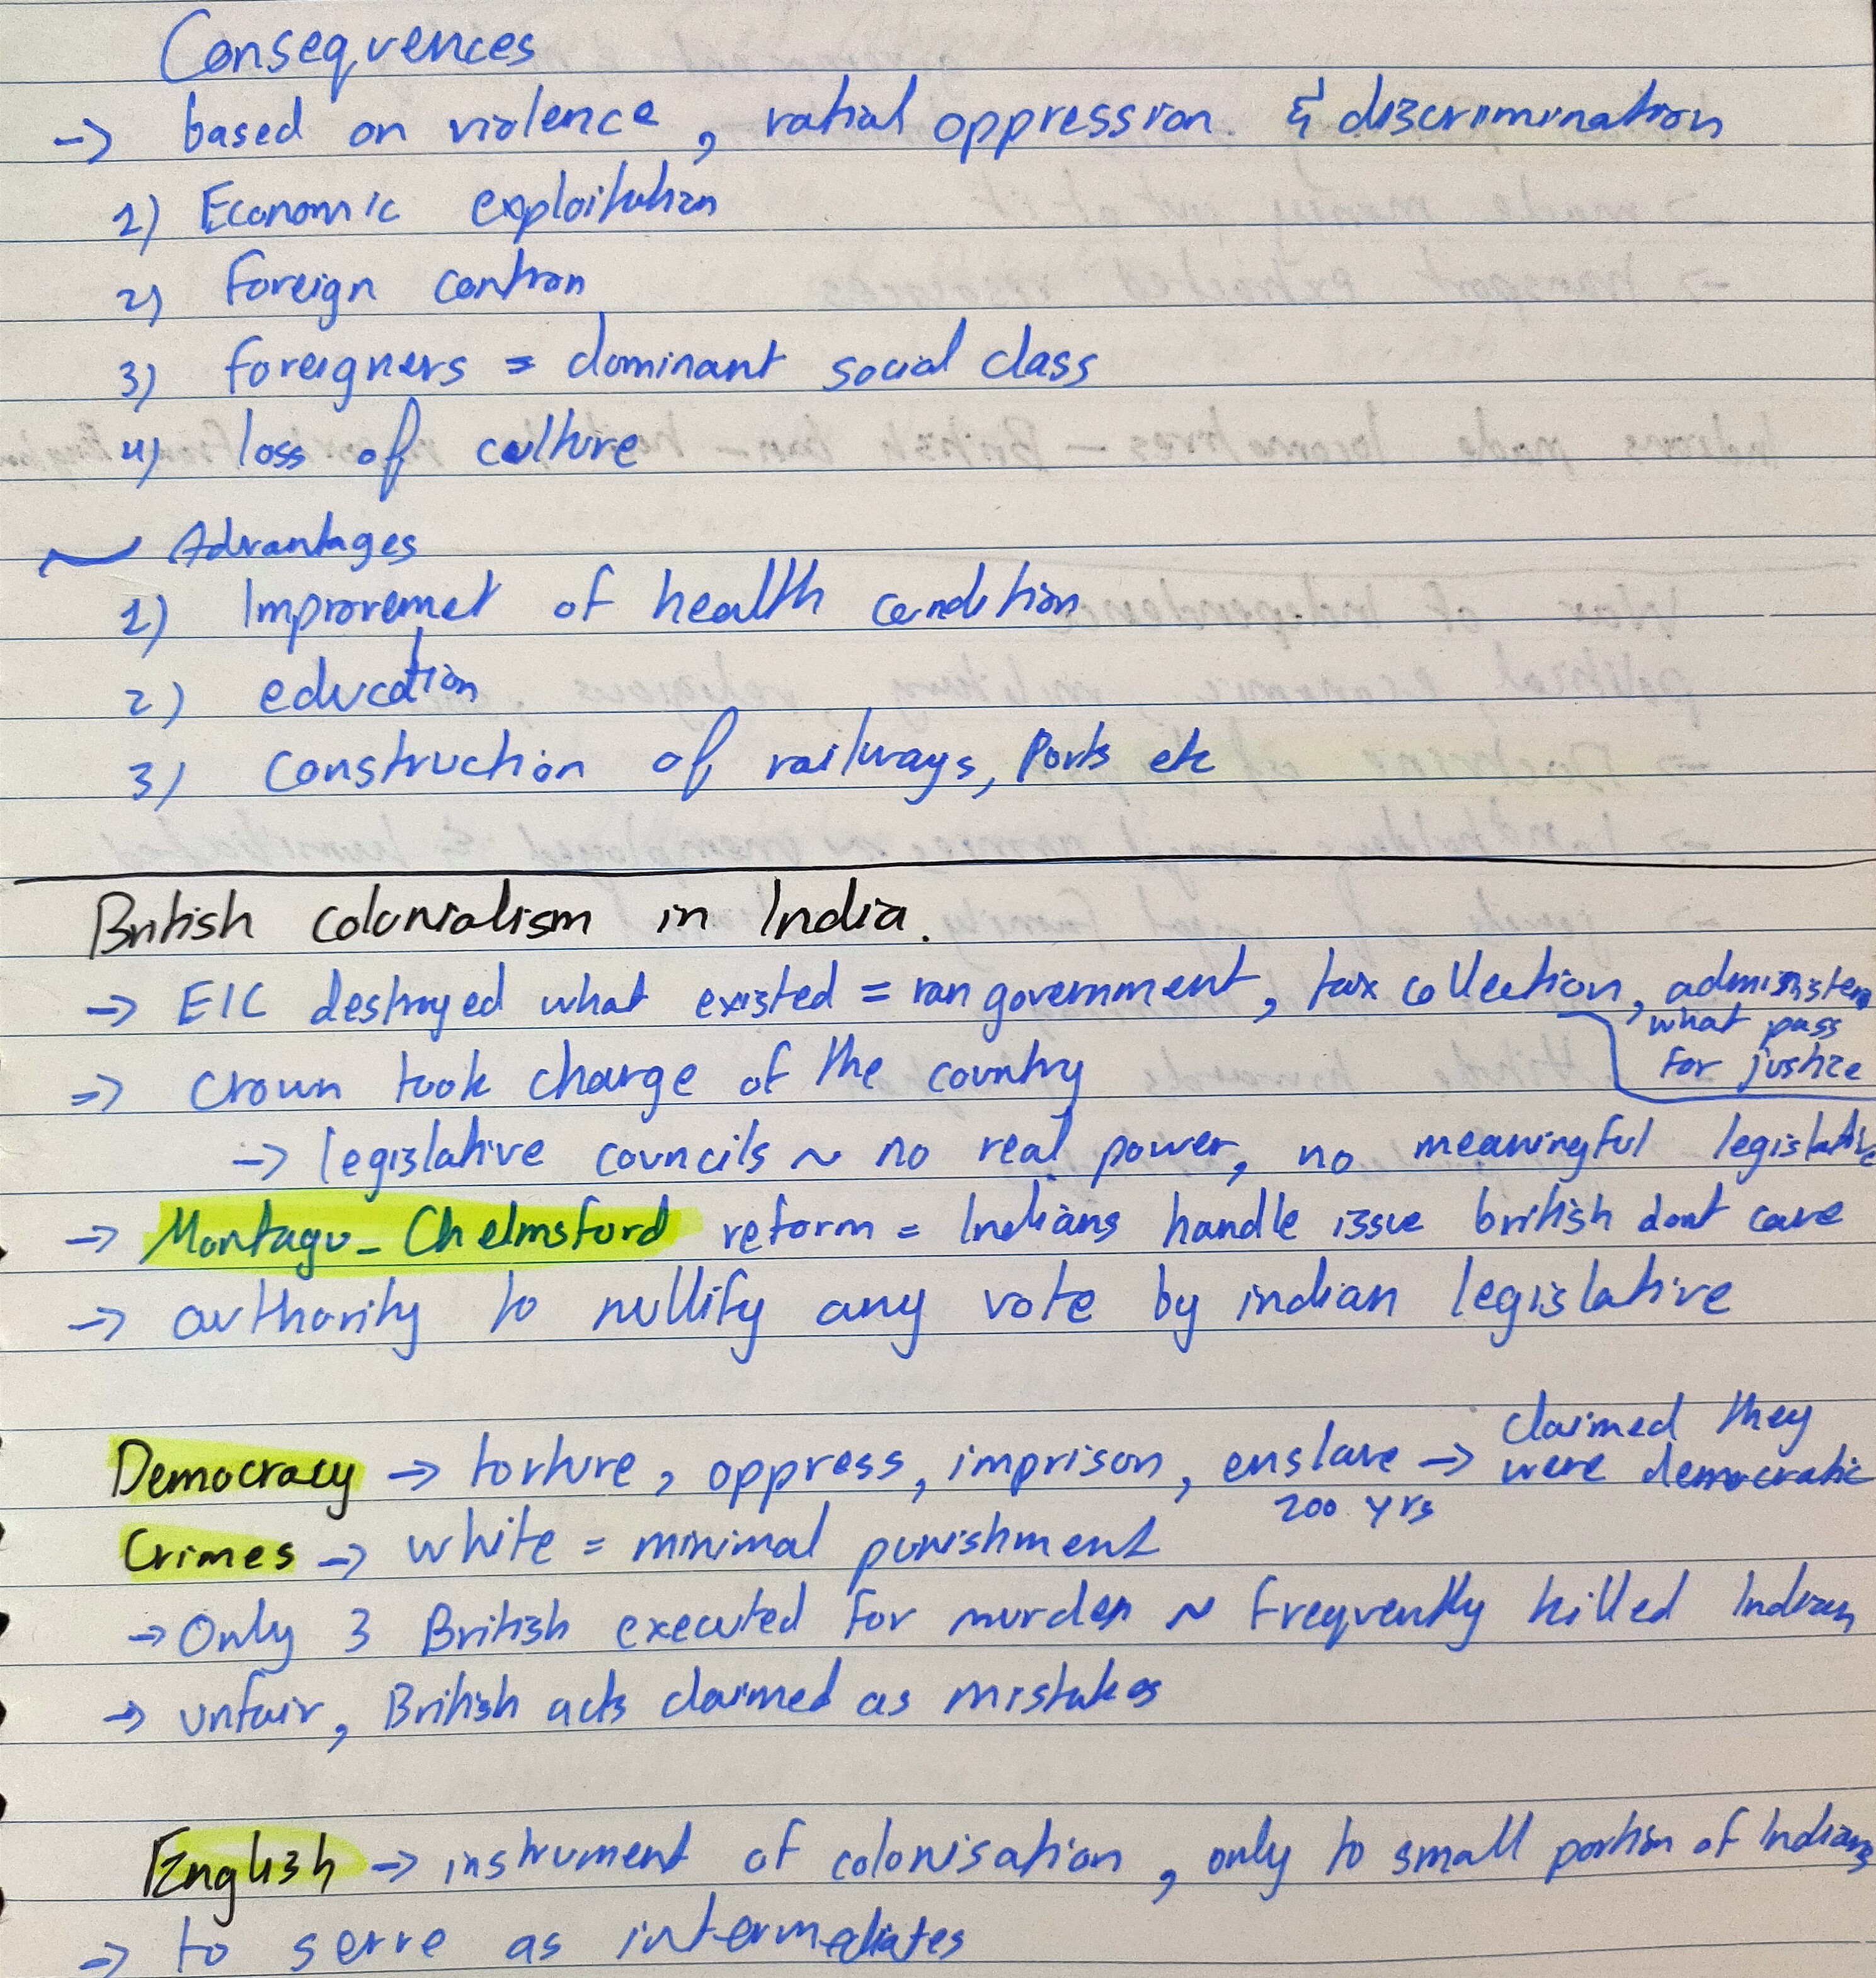 Consequences
-> based on violence, ratial oppression. & discrimination
1) Economic exploitation
2) Foreign contron
3) foreigners = dominant social class
4) loss of culture
~ Advantages
1) Improvemet of health condition
2) education
3) construction of railways, Ports etc
British colonialism in India.
-> EIC destroyed what existed = ran government, tax collection, administer
what pass
for justice
=> Crown took charge of the country
-> legislative councils ~ no real power, no meaningful legislative
-> Montagu-Chelmsford reform = Indians handle issue british dont care
-> authority to nullify any vote by indian legislative
Democracy -> torture, oppress, imprison, enslave -> claimed they
200 yrs were democratic
Crimes -> white = minimal punishment
-> Only 3 British executed for murder ~ frequently killed Indian
-> unfair, British acts claimed as mistakes
English -> instrument of colonisation, only to small portion of Indians
-> to serve as intermediates